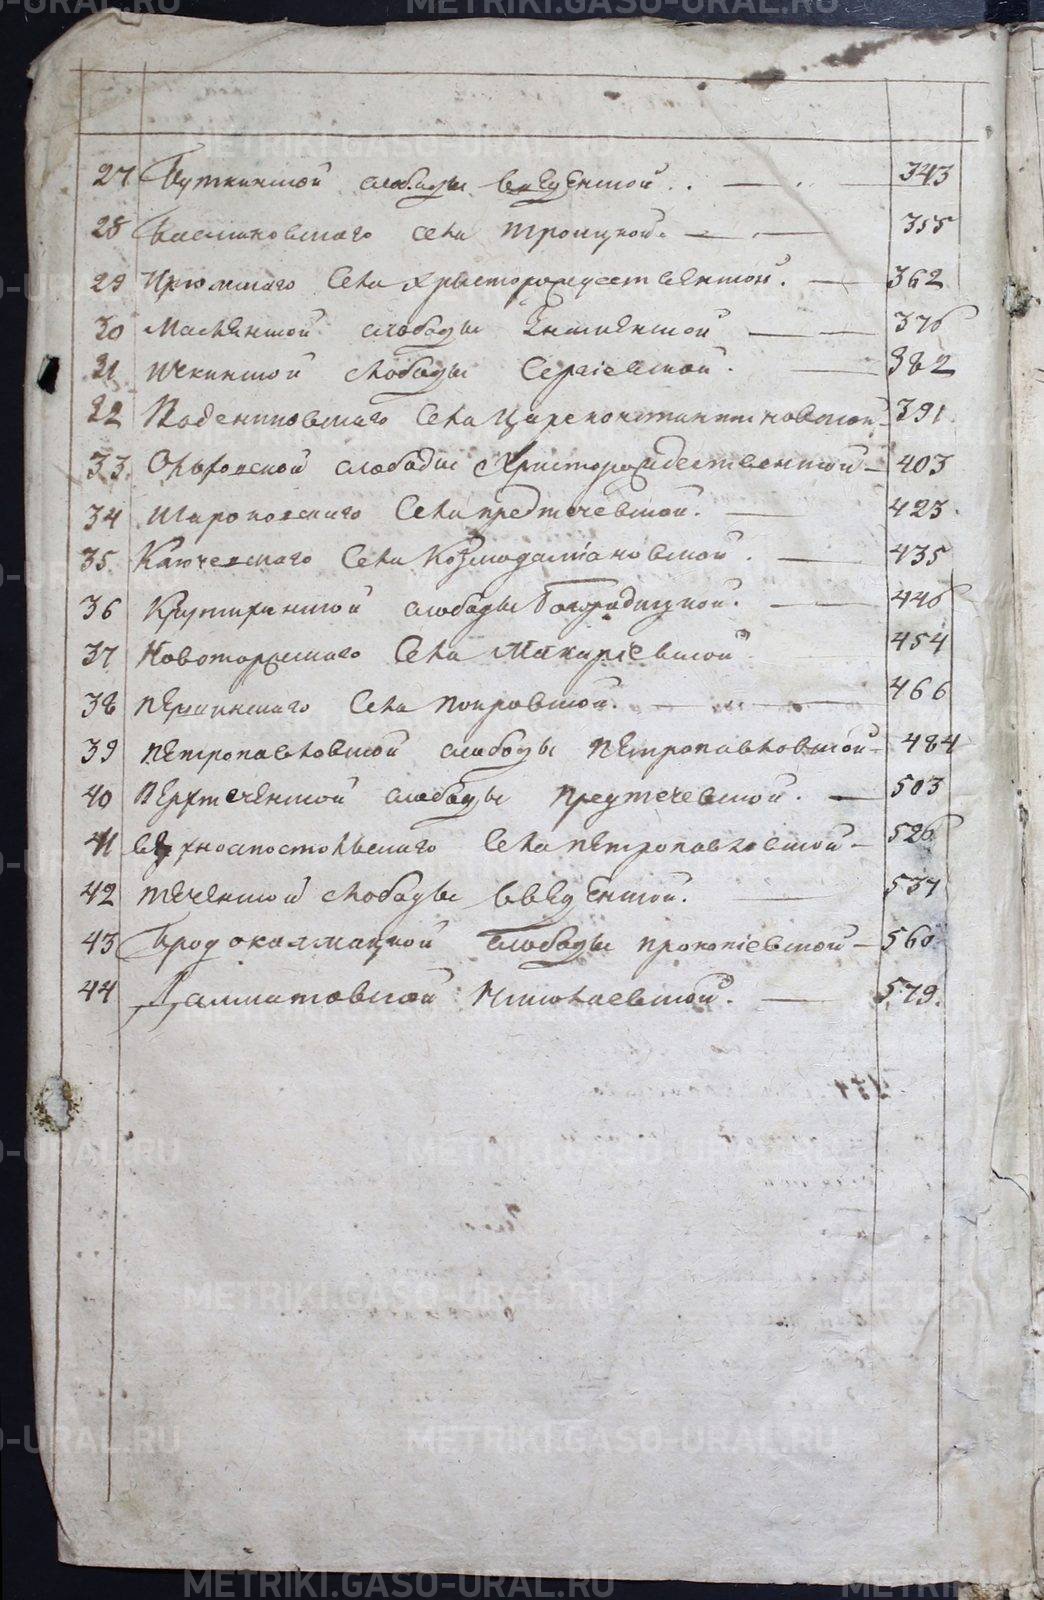 27 Буткинской слободы введенской . . — .. — 343
28 Басмановскаго села троицкой. — . — 355
29 Ирюмскаго села христорождественской. — 362
30 Маслянской слободы знаменской — — 376
31 ичкинской слободы Сергіевской. — 382
32 Каденниковскаго села Цареконстантиновской 391
33. Ольховской слободы христорождественской — 403
34 широковскаго села предтечевской. — 423.
35. Ключевскаго села Козмодаміановской. — 435
36 Крутихинской слободы Богородицкой. — 446
37 Новоторжскаго села Макаріевской 454
38 першинскаго села покровской. — — 466
39 петропавловской слободы петропавловской — 484
40 верхтеченской слободы предтечевской. — 503
41 верхноапостольскаго села петропавловской — 526
42 теченской слободы введенской. — 537
43 Бродокалмацкой слободы прокопіевской — 560
44 Далматовской Николаевской. — 579.
METRIKI.GASO-URAL.RU